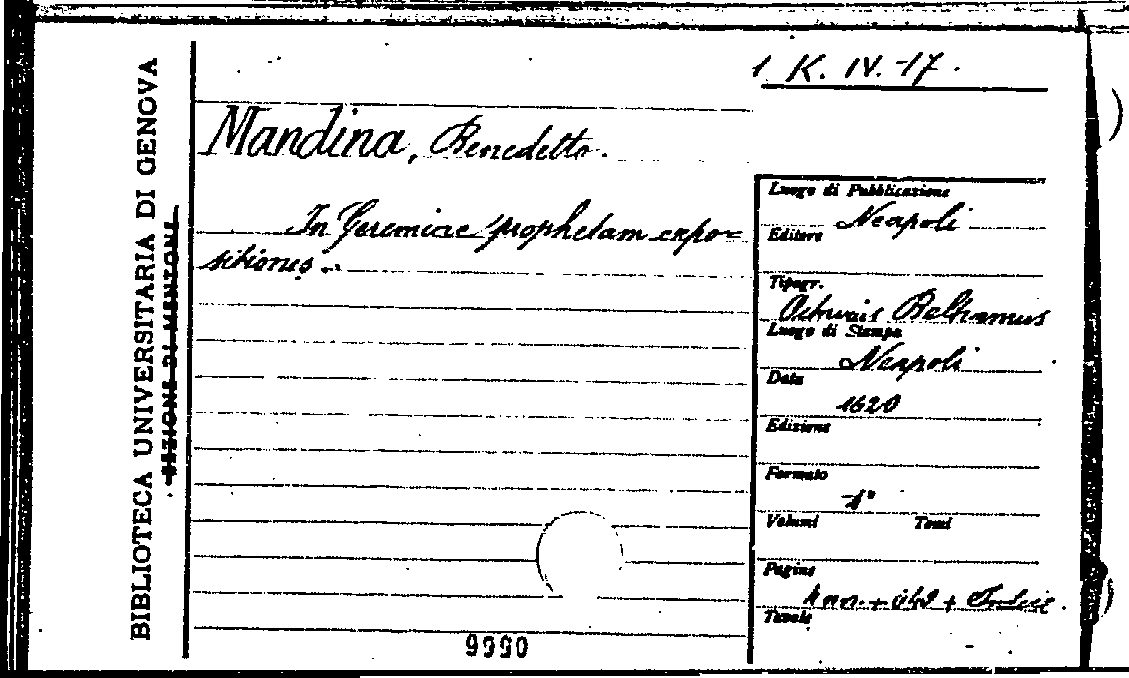 1 K. IV.-17.
BIBLIOTECA UNIVERSITARIA DI GENOVA
SEZIONE DI MENTONE
Mandina, Benedetto.
In Geremiae prophetam expo=
sitiones..
Luogo di Pubblicazione
Neapoli
Editore
Tipogr.
Luogo di Stampa
Neapoli
Data
1620
Edizione
Formato
4°
Volumi Tomi
Pagine
4 nn. + + Indice.
Tavole